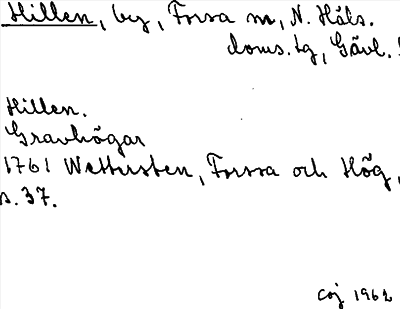 Hillen, by, Forsa sn, N. Häls.
doms. tg, Gävl.
Hillen.
Gravhögar
1761 Wettersten, Forssa och Hög,
s. 37.
Coj 1962